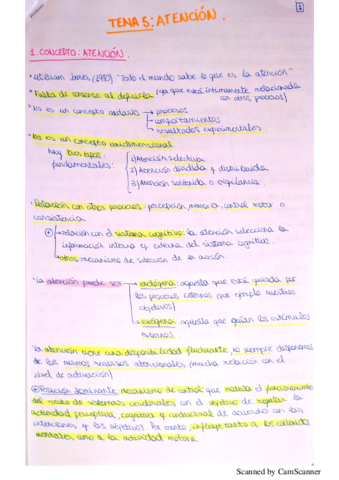 1
TEMA 5: ATENCIÓN.
1. CONCEPTO: ATENCIÓN.
• William James (1890) "Todo el mundo sabe lo que es la atención"
• Falta de consenso al definirla (ya que está íntimamente relacionada
con otros procesos)
• No es un concepto unitario → procesos
→ comportamientos
→ resultados experimentales
• No es un concepto unidimensional
hay tres tipos
fundamentales:
1) Atención selectiva
2) Atención dividida y distribuida
3) Atención sostenida o vigilancia
• Relación con otros procesos: percepción, memoria, control motor o
consciencia.
→ relación con el sistema cognitivo: la atención selecciona la
información interna y externa del sistema cognitivo.
→ otros: mecanismo de selección de la acción.
• La atención puede ser → endógena: aquella que está guiada por
los procesos internos (por ejemplo nuestros
objetivos)
→ exógena: aquella que guían los estímulos
externos.
• La atención tiene una disponibilidad fluctuante, no siempre disponemos
de los mismos recursos atencionales (mucha relación con el
nivel de activación)
Posición dominante: mecanismo de control que modula el funcionamiento
del resto de sistemas cerebrales con el objetivo de regular la
actividad perceptiva, cognitiva y conductual de acuerdo con las
intenciones y los objetivos. Por tanto, influye tanto a los contenidos
mentales, como a la actividad motora.
Scanned by CamScanner